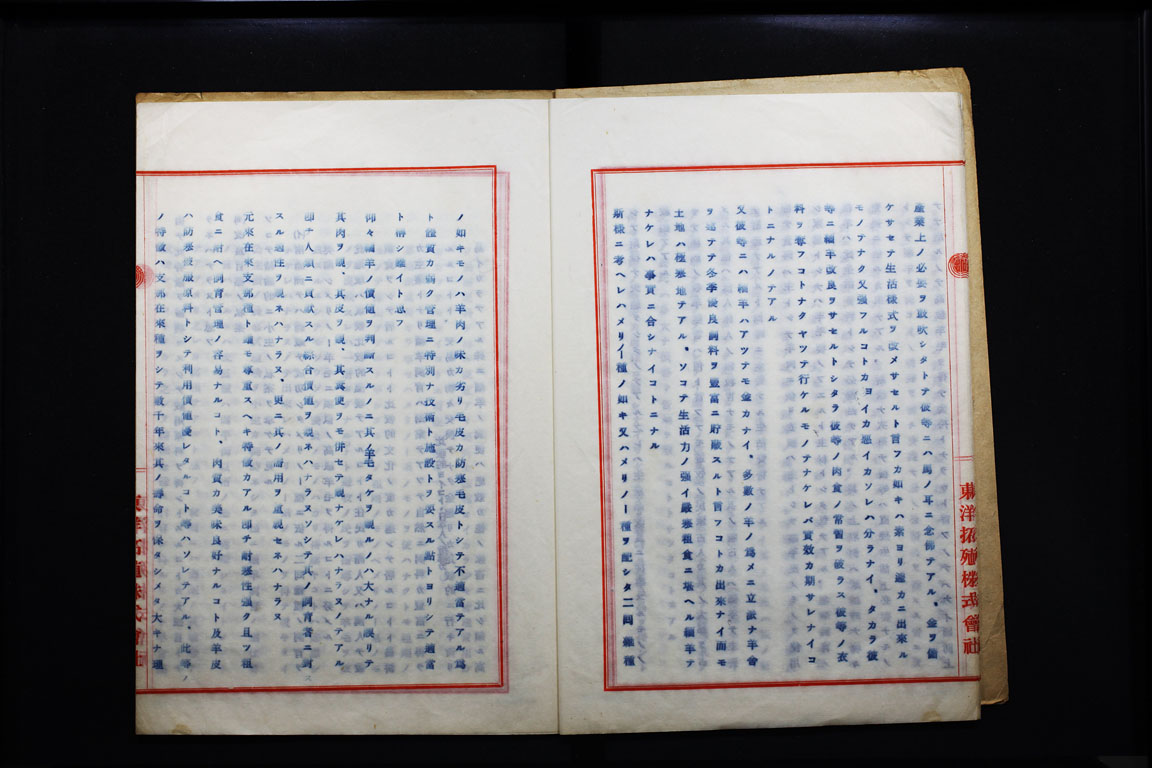 産業上ノ必要ヲ鼓吹シタトテ彼等ニハ馬ノ耳ニ念佛テアル、金ヲ儲
ケサセテ生活様式ヲ改メサセルト言フカ如キハ素ヨリ遽カニ出來ル
モノテナク又強フルコトカヨイカ悪イカソレハ分ラナイ、タカラ彼
等ニ緬羊改良ヲサセルトシタラ彼等ノ肉食ノ常習ヲ破ラス彼等ノ衣
料ヲ奪フコトナクヤツテ行ケルモノテナケレバ實效カ期サレナイコ
トニナルノテアル
又彼等ニハ緬羊ハアツテモ金カナイ、多數ノ羊ノ爲メニ立派ナ羊舎
ヲ建テテ冬季優良飼料ヲ豐富ニ貯藏スルト言フコトカ出來ナイ而モ
土地ハ極寒地テアル、ソコテ生活力ノ強イ嚴寒粗食ニ堪ヘル緬羊テ
ナケレハ事實ニ合シナイコトニナル
斯様ニ考ヘレハメリノー種ノ如キ又ハメリノー種ヲ配シタ二回雜種
ノ如キモノハ羊肉ノ味カ劣リ毛皮カ防寒毛皮トシテ不適當テアル爲
ト體質カ弱ク管理ニ特別ナ技術ト施設トヲ要スル點トヨリシテ適當
ト稱シ難イト思フ
抑々緬羊ノ價値ヲ判斷スルノニ其ノ羊毛タケヲ視ルノハ大ナル誤リテ
其肉ヲ視、其皮ヲ視、其糞便ヲモ併セテ視ナケレハナラヌノテアル
即チ人類ニ貢獻スル綜合價値ヲ視ネハナラヌソシテ其ノ飼育者ニ對ス
スル適性ヲ視ネハナラヌ、更ニ其ノ諸用ヲ重視セネハナラヌ
元來在來支那種ト雖モ尊重スヘキ特徴カアル即チ耐寒性強ク且ツ粗
食ニ耐ヘ飼育管理ノ容易ナルコト、肉質カ美味良好ナルコト及羊皮
ハ防寒被服原料トシテ利用價値優レタルコト等ハソレテアル、此等ノ
ノ特徴ハ支那在來種ヲシテ數千年來其ノ壽命ヲ保タシメタ大キナ理
東洋拓殖株式會社